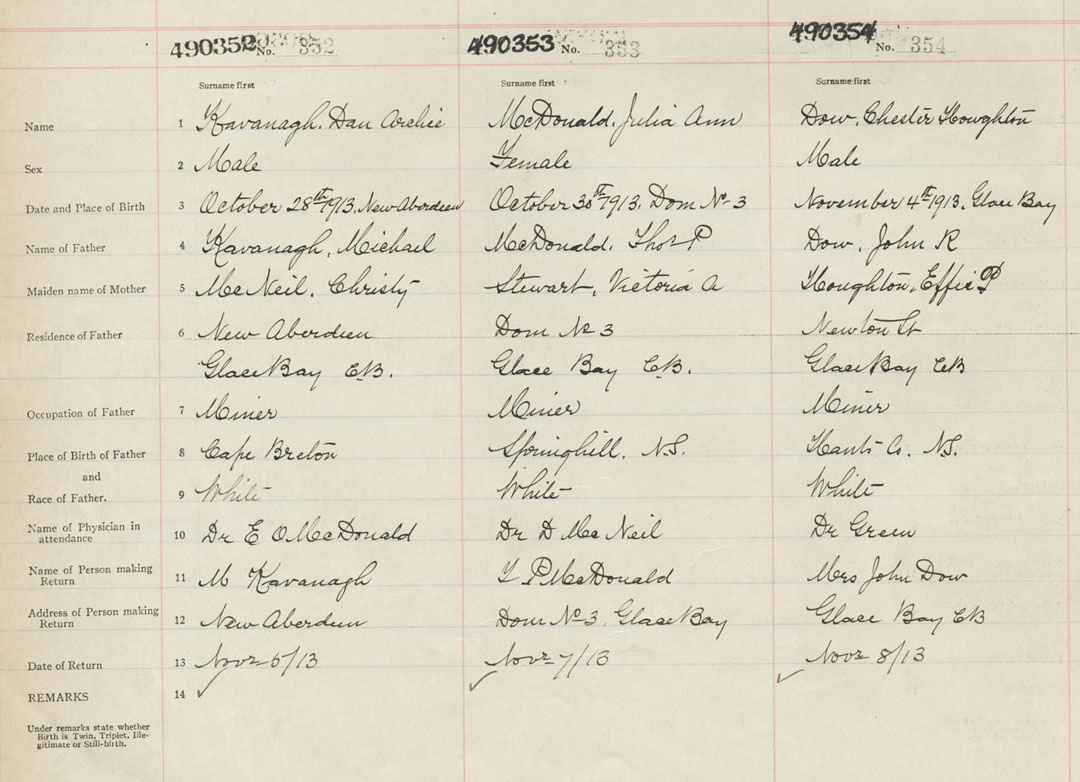 490352 No. 352 490353 No. 353 490354 No. 354
Surname first Surname first Surname first
Name 1 Kavanagh. Dan Archie McDonald. Julia Ann Dow. Chester Houghton
Sex 2 Male Female Male
Date and Place of Birth 3 October 28th 1913. New Aberdeen October 30th 1913. Dom No 3 November 4th 1913. Glace Bay
Name of Father 4 Kavanagh, Michael McDonald. Thos P Dow. John R
Maiden name of Mother 5 McNeil. Christy Stewart, Victoria A Houghton, Effie P
Residence of Father 6 New Aberdeen Dom No 3 Newton St
Glace Bay C.B. Glace Bay C.B. Glace Bay CB
Occupation of Father 7 Miner Miner Miner
Place of Birth of Father 8 Cape Breton Springhill. N.S. Hants Co. N.S.
and
Race of Father. 9 White White White
Name of Physician in
attendance 10 Dr E O McDonald Dr D McNeil Dr Green
Name of Person making
Return 11 M Kavanagh T P McDonald Mrs John Dow
Address of Person making
Return 12 New Aberdeen Dom No 3. Glace Bay Glace Bay CB
Date of Return 13 Novr 6/13 Novr 7/13 Novr 8/13
REMARKS 14
Under remarks state whether
Birth is Twin, Triplet, Ille-
gitimate or Still-birth.